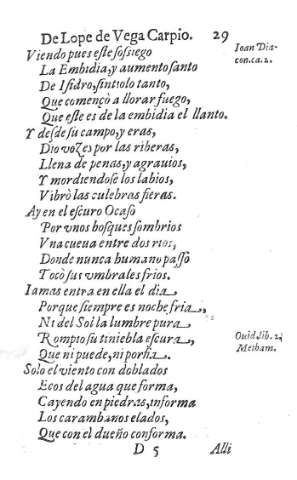 De Lope de Vega Carpio. 29
Viendo pues este sossiego
Ioan Dia-
con.ca.2.
La Embidia, y aumento santo
De Isidro, sintiolo tanto,
Que començò a llorar fuego,
Que este es de la embidia el llanto.
Y desde su campo, y eras,
Dio vozes por las riberas,
Llena de penas, y agrauios,
Y mordiendose los labios,
Vibrò las culebras fieras.
Ay en el escuro Ocaso
Por vnos bosques sombrios
Vna cueua entre dos rios,
Donde nunca humano passò
Tocò sus vmbrales frios.
Iamas entra en ella el dia
Porque siempre es noche fria,
Ni del Sol la lumbre pura
Rompio su tiniebla escura,
Ouid. lib. 2.
Metham.
Que ni puede, ni porfia.
Solo el viento con doblados
Ecos del agua que forma,
Cayendo en piedras, informa
Los carambanos elados,
Que con el dueño conforma.
D 5 Alli